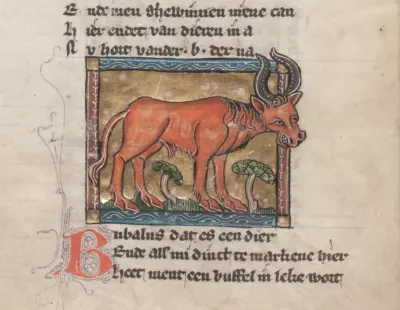 Ende men ghewinnen mene can
Hier endet van dieren in a
Nv hort vander · b · der na
Bubalus dat es een dier
Ende als mi dinct te markene hier
heet ment een buffel in leke wort